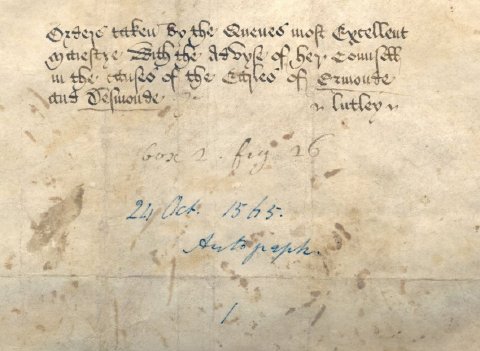 Orders taken by the Quenes most Excellent
Maiestye With the Advyse of her Counsell
in the causes of the Earles of Ormonde
and Desmonde
Lutley
box 2. 26
24 Oct. 1565.
Autograph.
1